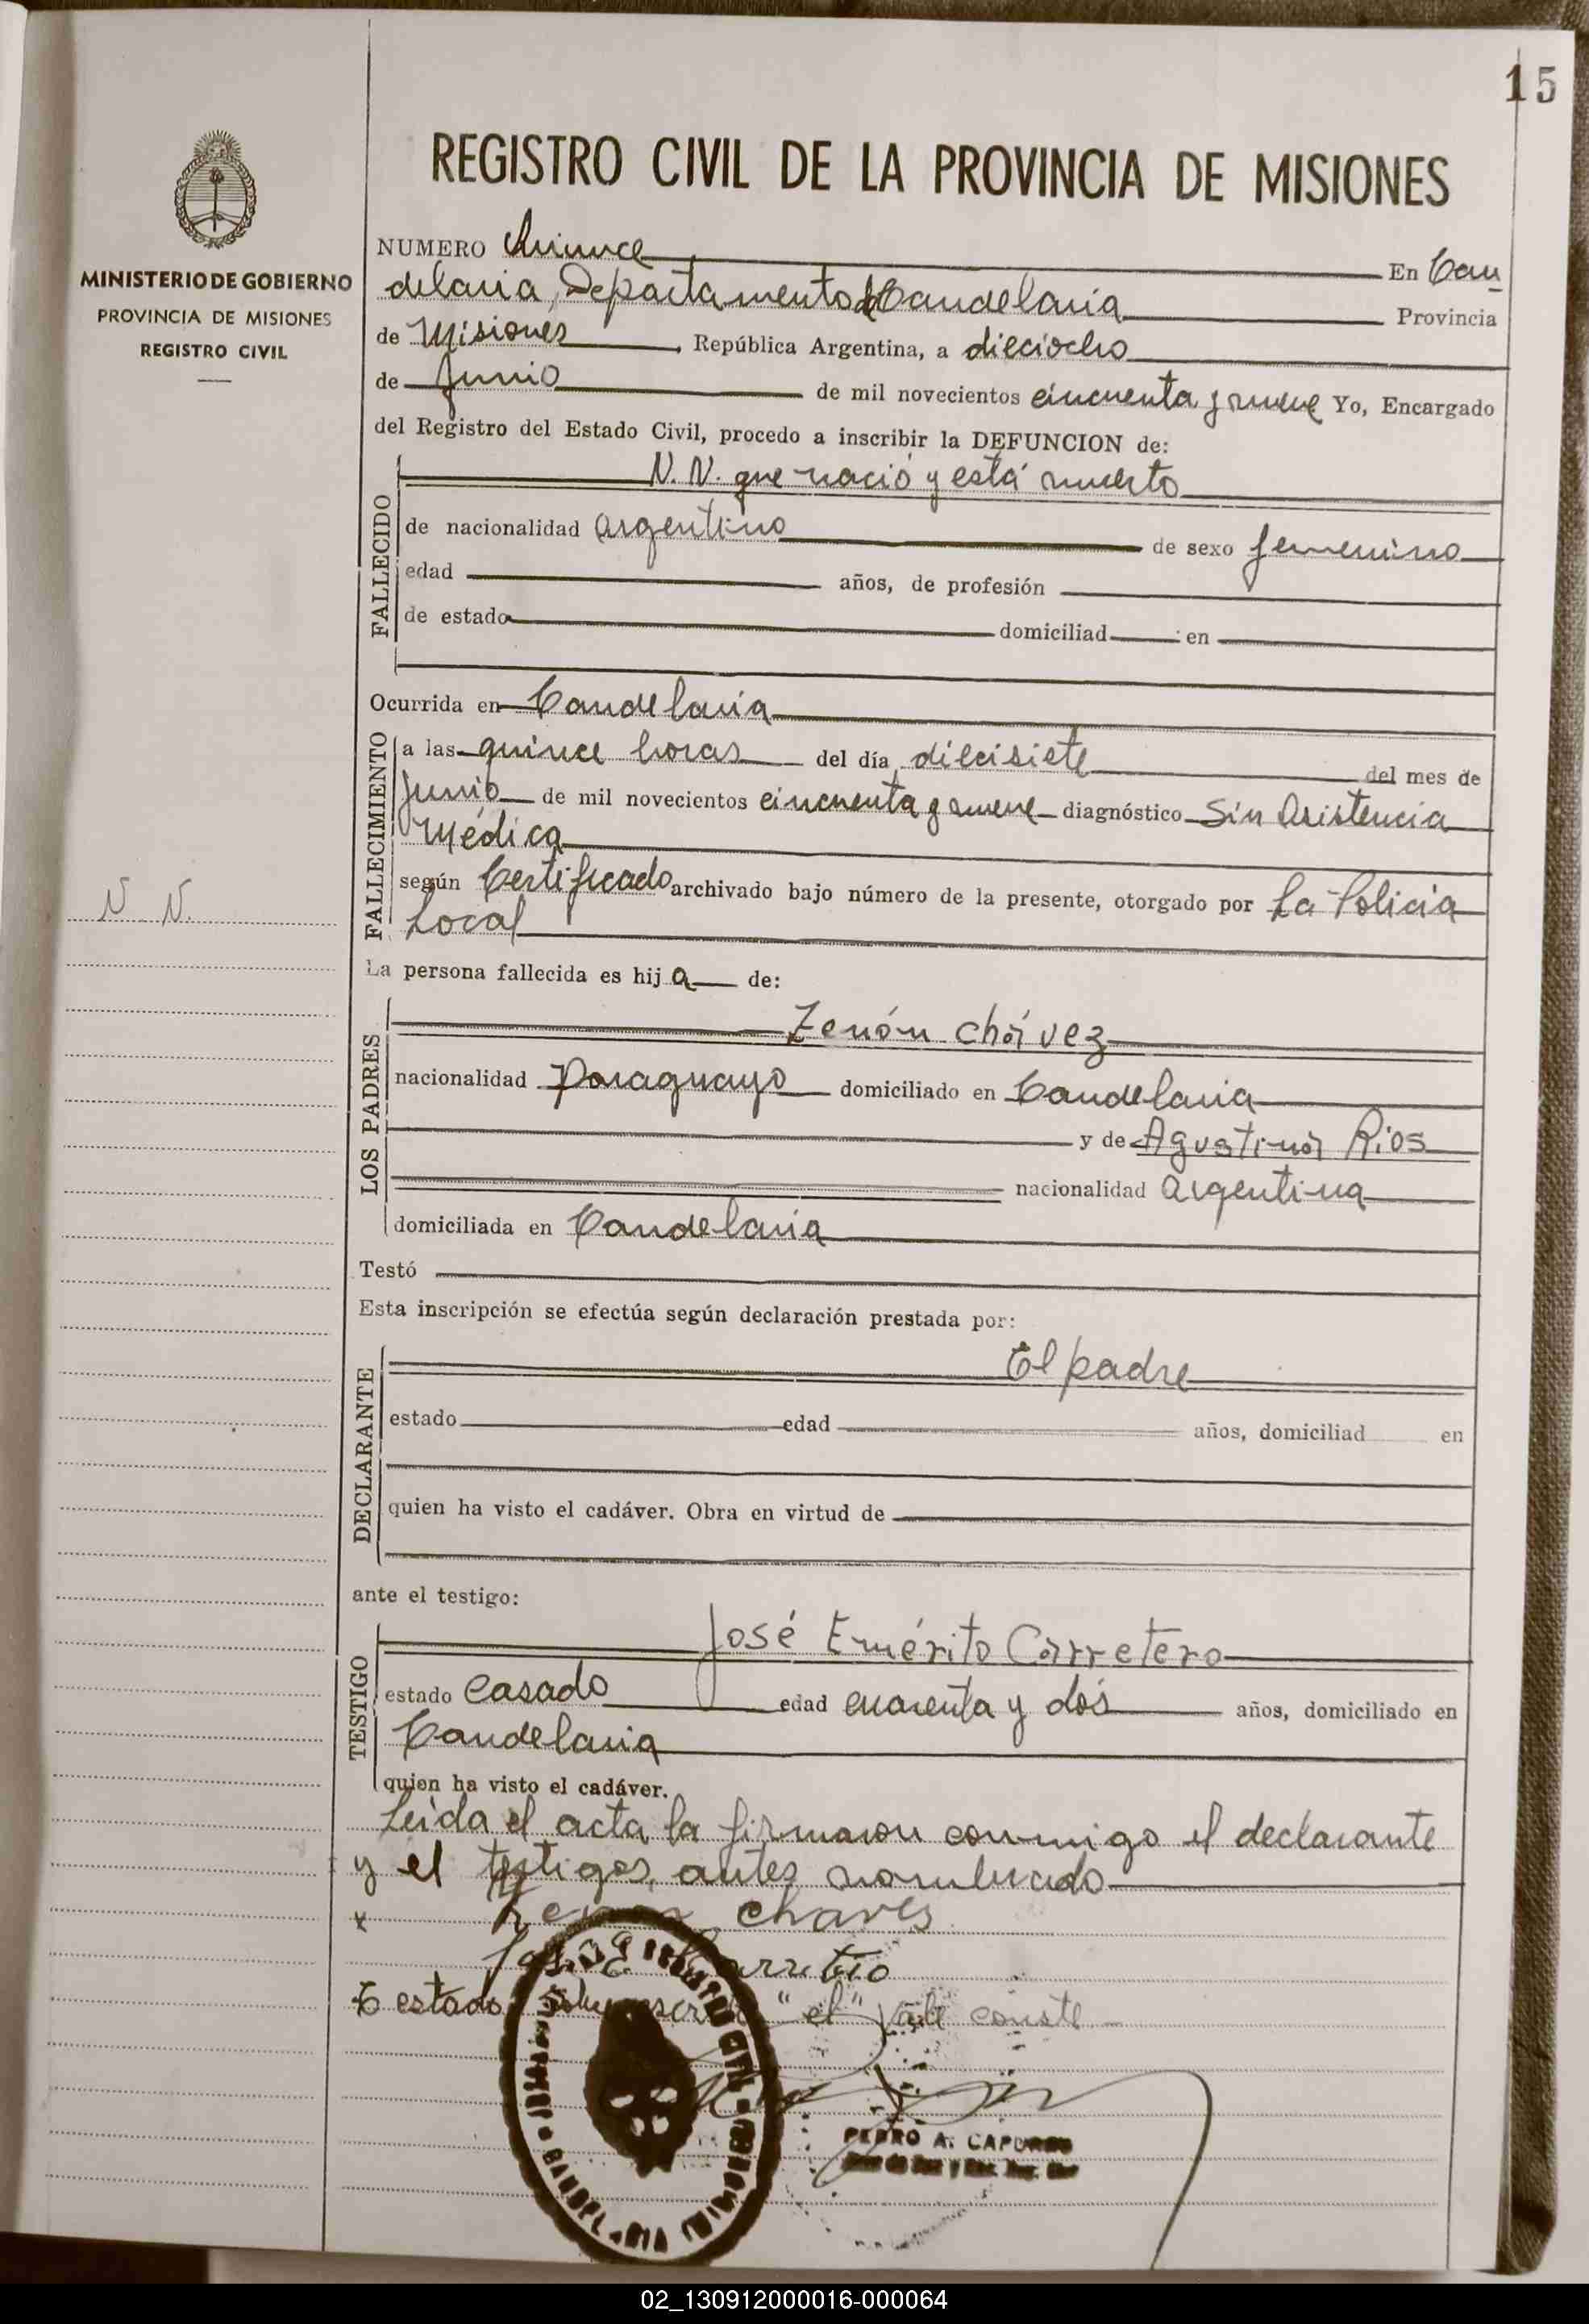 15
REGISTRO CIVIL DE LA PROVINCIA DE MISIONES
MINISTERIO DE GOBIERNO
PROVINCIA DE MISIONES
REGISTRO CIVIL
NUMERO Quince En Can
delaria, Departamento de Candelaria Provincia
de Misiones, República Argentina, a dieciocho
de Junio de mil novecientos cincuenta y nueve Yo, Encargado
del Registro del Estado Civil, procedo a inscribir la DEFUNCION de:
FALLECIDO
N. N. que nació y está muerto
de nacionalidad argentino de sexo femenino
edad años, de profesión
de estado domiciliad en
Ocurrida en Candelaria
FALLECIMIENTO
a las quince horas del día diecisiete del mes de
Junio de mil novecientos cincuenta y nueve diagnóstico Sin Asistencia
Médica
según Certificado archivado bajo número de la presente, otorgado por La Policía
Local
N. N.
La persona fallecida es hija de:
LOS PADRES
Zenón Chávez
nacionalidad Paraguayo domiciliado en Candelaria
y de Agustina Rios
nacionalidad argentina
domiciliada en Candelaria
Testó
Esta inscripción se efectúa según declaración prestada por:
DECLARANTE
El padre
estado edad años, domiciliad en
quien ha visto el cadáver. Obra en virtud de
ante el testigo:
TESTIGO
José Emérito Carretero
estado Casado edad cuarenta y dos años, domiciliado en
Candelaria
quien ha visto el cadáver.
Leida el acta la firmaron conmigo el declarante
y el testigos, antes nombrado
x Chaves
estado "el" vale conste
PEDRO A.
02_130912000016-000064